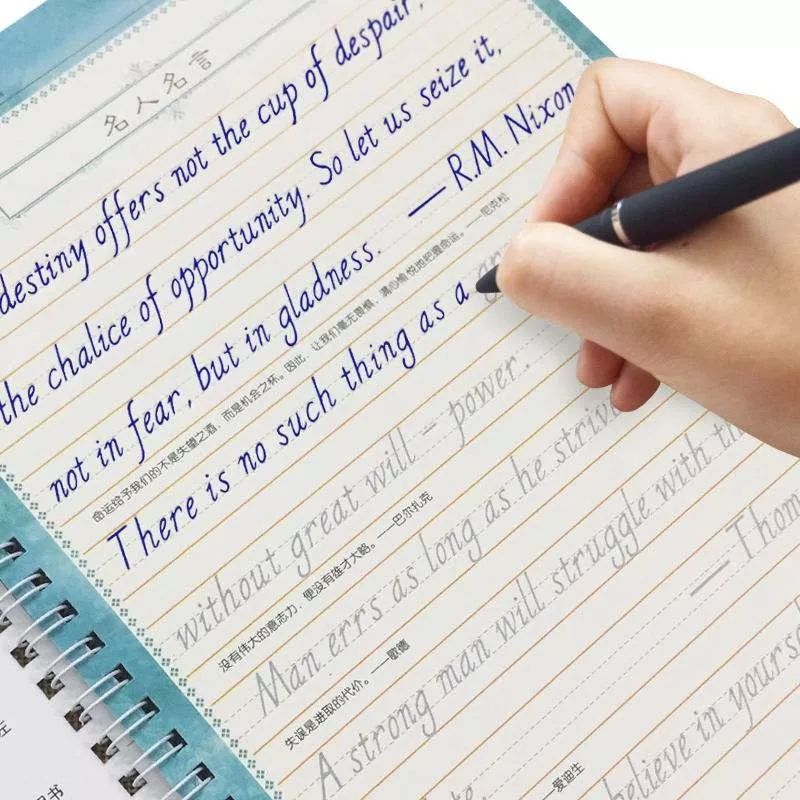 名人名言
destiny offers not the cup of despair,
the chalice of opportunity. So let us seize it,
not in fear, but in gladness. — R.M. Nixon
命运给予我们的不是失望之酒，而是机会之杯。因此，让我们毫无畏惧，满心愉悦地把握命运。——尼克松
There is no such thing as a
without great will - power.
没有伟大的意志力，便没有雄才大略。——巴尔扎克
Man errs as long as he strive
失误是进取的代价。——歌德
A strong man will struggle with th
—Thom
——爱迪生
believe in yourse